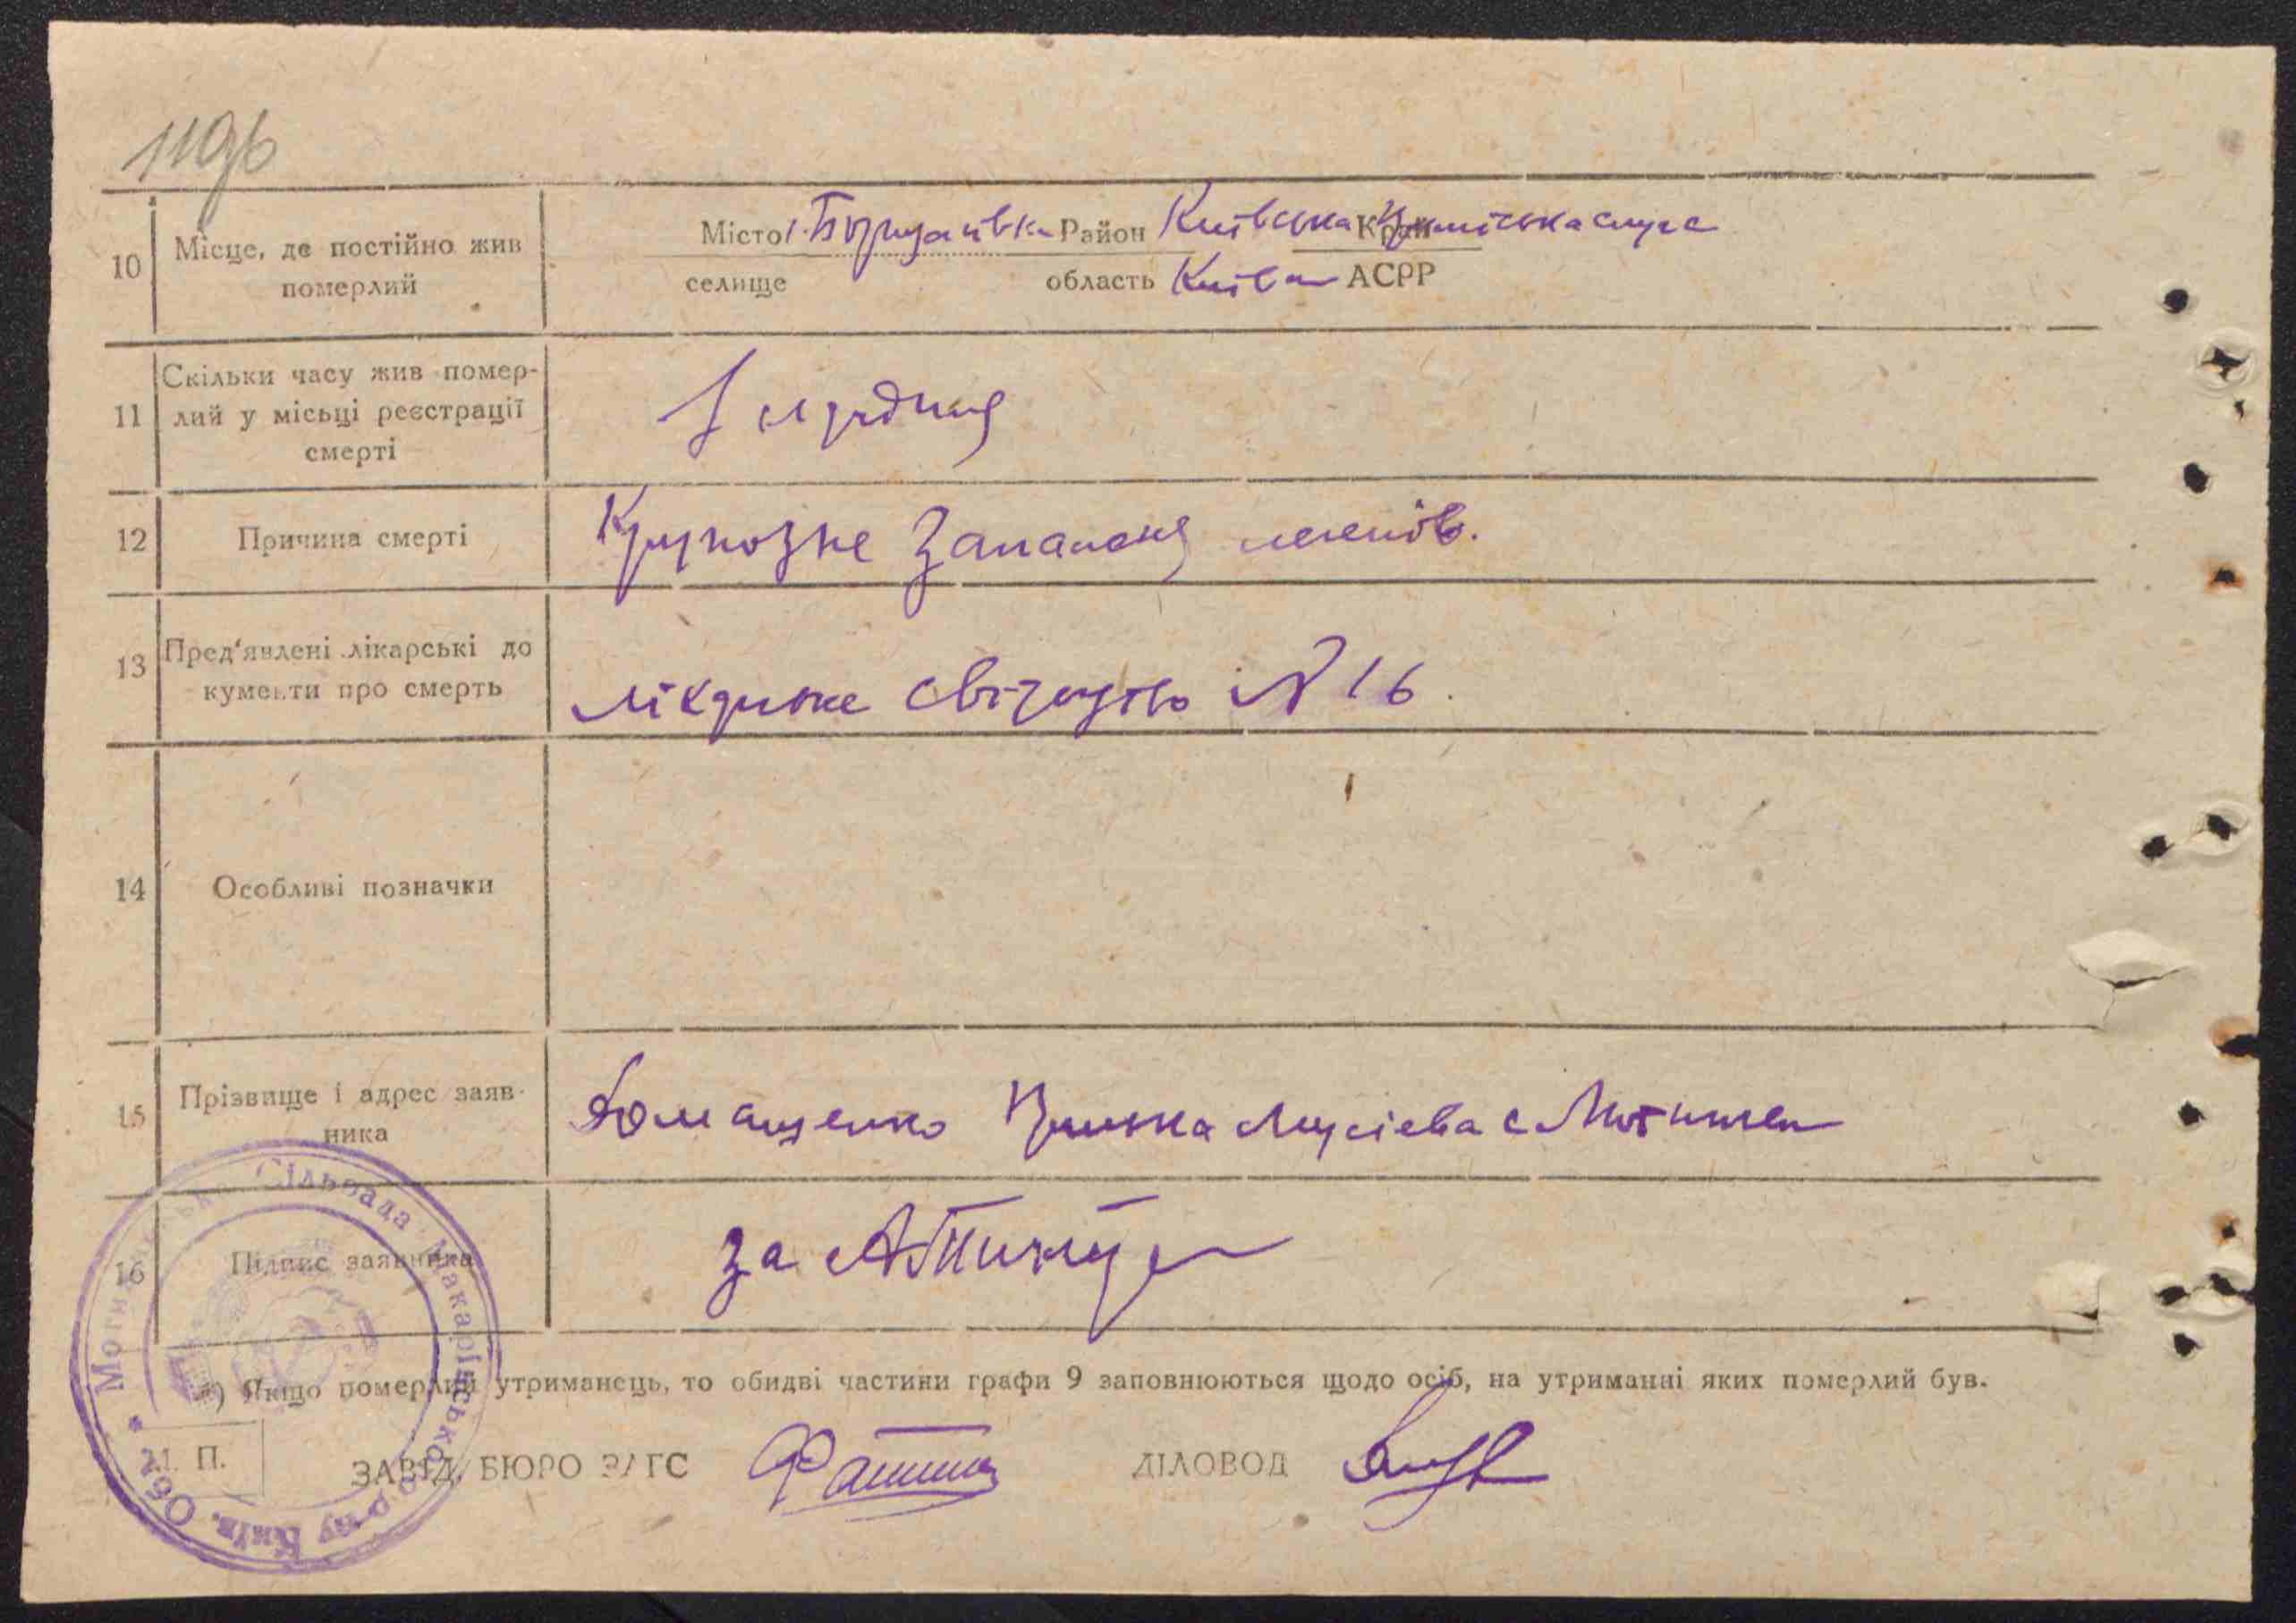 1196
10 Місце, де постійно жив померлий
Місто с. Борщагівка Район Київська Край приміська смуга
селище область Київська АСРР
11 Скільки часу жив помер-
лий у місьці реєстрації
смерті
12 Причина смерті Крупозне запаленя легенів.
13 Пред'явлені лікарські до
кументи про смерть лікарське свідоцтво № 16.
14 Особливі позначки
15 Прізвище і адрес заяв-
ника Домащенко Мусієва с Мотижен
16 Підпис заявника за
*) Якщо померлий утриманець, то обидві частини графи 9 заповнюються щодо осіб, на утриманні яких померлий був.
М. П. ЗАВІД. БЮРО ЗАГС ДІЛОВОД
Сільрада Макарівського р-ну Київ. Обл.